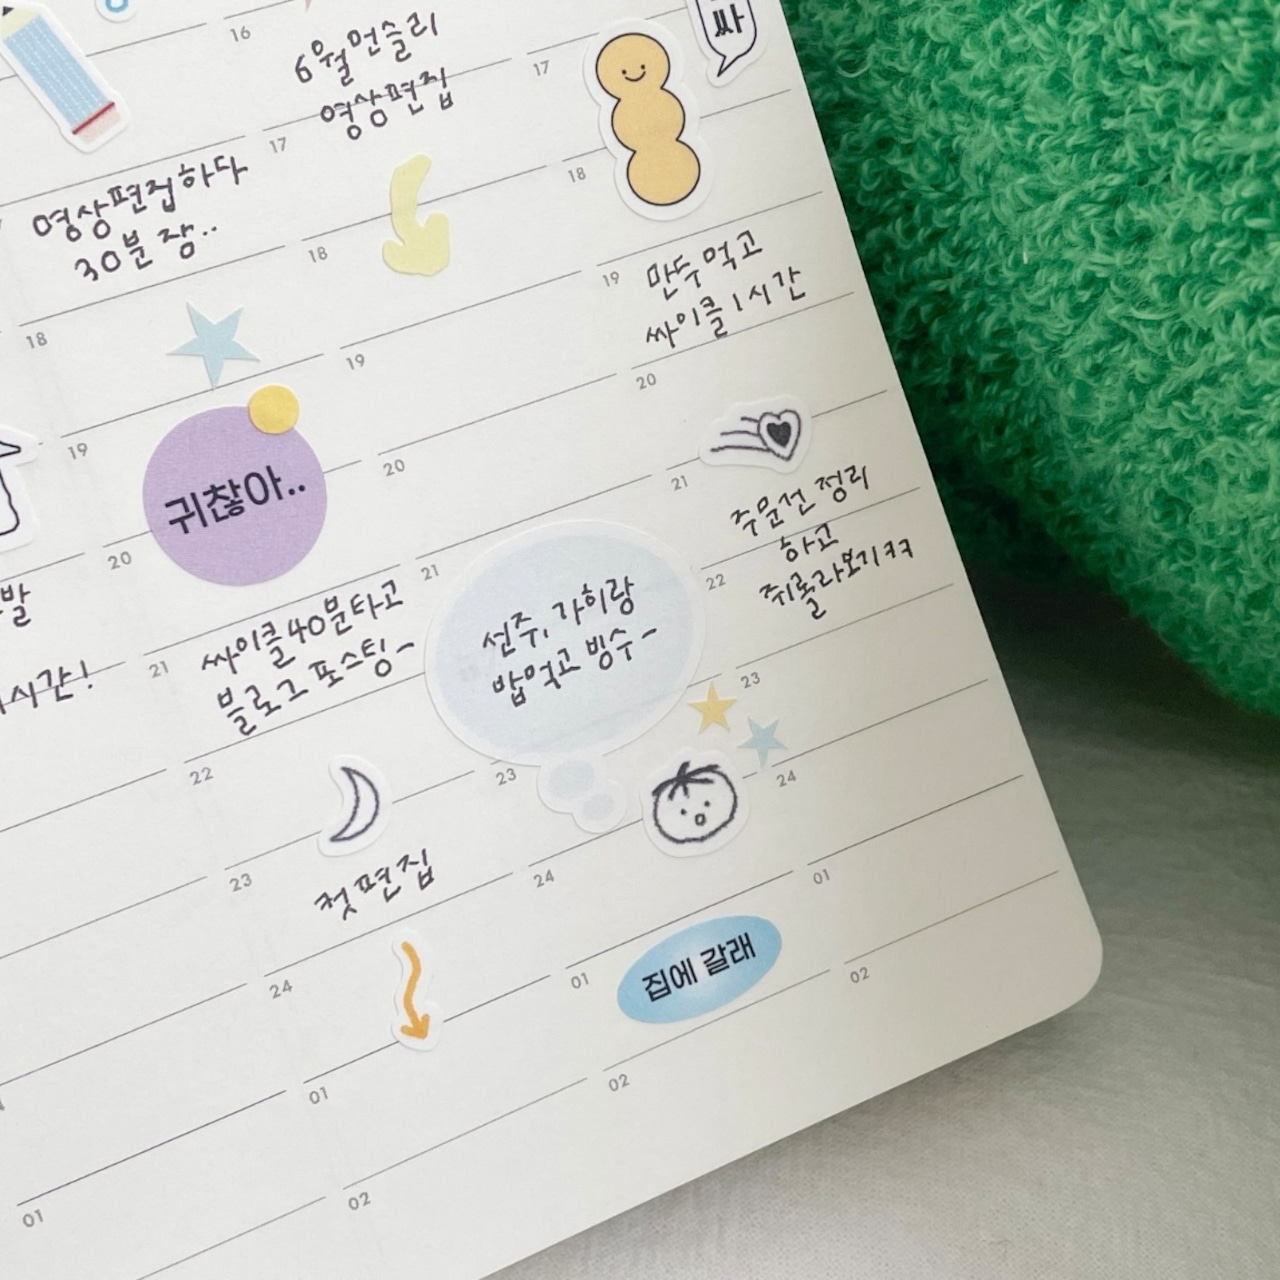 싸
16
6월 먼슬리
영상편집
17
17
18
영상편집하다
30분 잠..
18
18
19
만두 먹고
싸이클 1시간
19
19
20
20
20
21
귀찮아..
주문건 정리
하고
쥐롤라보기ㅋㅋ
21
22
발
시간!
21
싸이클 40분 타고
블로그 포스팅~
선주, 가히랑
밥먹고 빙수~
22
23
23
24
23
첫 편집
24
01
24
01
집에 갈래
02
01
02
01
02